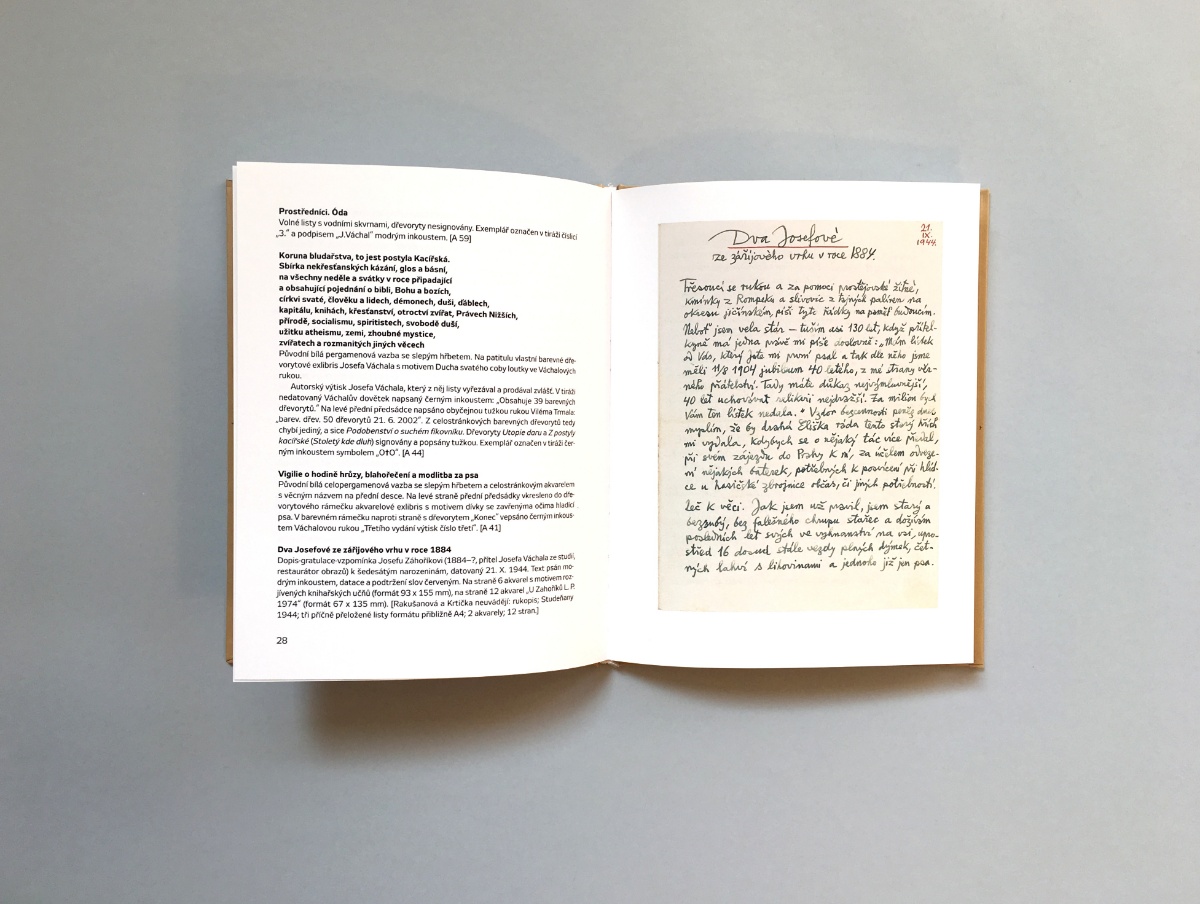 Prostředníci. Óda
Volné listy s vodními skvrnami, dřevoryty nesignovány. Exemplář označen v tiráži číslicí
„3.“ a podpisem „J.Váchal“ modrým inkoustem. [A 59]
Koruna bludařstva, to jest postyla Kacířská.
Sbírka nekřesťanských kázání, glos a básní,
na všechny neděle a svátky v roce připadající
a obsahující pojednání o bibli, Bohu a bozích,
církvi svaté, člověku a lidech, démonech, duši, ďáblech,
kapitálu, knihách, křesťanství, otroctví zvířat, Právech Nižších,
přírodě, socialismu, spiritistech, svobodě duší,
užitku atheismu, zemi, zhoubné mystice,
zvířatech a rozmanitých jiných věcech
Původní bílá pergamenová vazba se slepým hřbetem. Na patitulu vlastní barevné dře-
vorytové exlibris Josefa Váchala s motivem Ducha svatého coby loutky ve Váchalových
rukou.
Autorský výtisk Josefa Váchala, který z něj listy vyřezával a prodával zvlášť. V tiráži
nedatovaný Váchalův dovětek napsaný černým inkoustem: „Obsahuje 39 barevných
dřevorytů.“ Na levé přední předsádce napsáno obyčejnou tužkou rukou Viléma Trmala:
„barev. dřev. 50 dřevorytů 21. 6. 2002“. Z celostránkových barevných dřevorytů tedy
chybí jediný, a sice Podobenství o suchém fíkovníku. Dřevoryty Utopie daru a Z postyly
kacířské (Stoletý kde dluh) signovány a popsány tužkou. Exemplář označen v tiráži čer-
ným inkoustem symbolem „O†O“. [A 44]
Vigilie o hodině hrůzy, blahořečení a modlitba za psa
Původní bílá celopergamenová vazba se slepým hřbetem a celostránkovým akvarelem
s věcným názvem na přední desce. Na levé straně přední předsádky vkresleno do dře-
vorytového rámečku akvarelové exlibris s motivem dívky se zavřenýma očima hladící
psa. V barevném rámečku naproti straně s dřevorytem „Konec“ vepsáno černým inkous-
tem Váchalovou rukou „Třetího vydání výtisk číslo třetí“. [A 41]
Dva Josefové ze zářijového vrhu v roce 1884
Dopis-gratulace-vzpomínka Josefu Záhoříkovi (1884–?, přítel Josefa Váchala ze studií,
restaurátor obrazů) k šedesátým narozeninám, datovaný 21. X. 1944. Text psán mo-
drým inkoustem, datace a podtržení slov červeným. Na straně 6 akvarel s motivem roz-
jívených knihařských učňů (formát 93 x 155 mm), na straně 12 akvarel „U Zahoříků L. P.
1974“ (formát 67 x 135 mm). [Rakušanová a Krtička neuvádějí: rukopis; Studeňany
1944; tři příčně přeložené listy formátu přibližně A4; 2 akvarely; 12 stran.]
28
21.
IX.
1944.
Dva Josefové
ze zářijového vrhu v roce 1884.
Třesoucí se rukou a za pomoci prostějovské žitné,
kmínky z Rompeka a slivovic z tajných palíren na
okresu jičínském, píši tyto řádky na paměť budoucím.
Neboť jsem vela stár – tuším asi 130 let, když přítel-
kyně má jedna právě mi píše doslovně: „Mám lístek
od Vás, který jste mi první psal a tak dle něho jsme
měli 11/8 1904 jubileum 40 letého, z mé strany věr-
ného přátelství. Tady máte důkaz nejvýmluvnější,
40 let uchovávat relikvii nejdražší. Za milion bych
Vám ten lístek nedala.“ Vzdor bezcennosti peněz dnes
myslím, že by drahá Eliška ráda tento starý hřích
mi vydala, kdybych se o nějaký tác více přičinil,
při svém zájezdu do Prahy k ní, za účelem odveze-
ní nějakých baterek, potřebných k posvícení při hlíd-
ce u hasičské zbrojnice občas, či jiných potřebností.
Leč k věci. Jak jsem už pravil, jsem starý a
bezzubý, bez falešného chrupu stařec a dožívám
posledních let svých ve vyhnanství na vsi, upro-
střed 16 dosud stále vezdy plných dýmek, čet-
ných lahví s lihovinami a jednoho již jen psa.